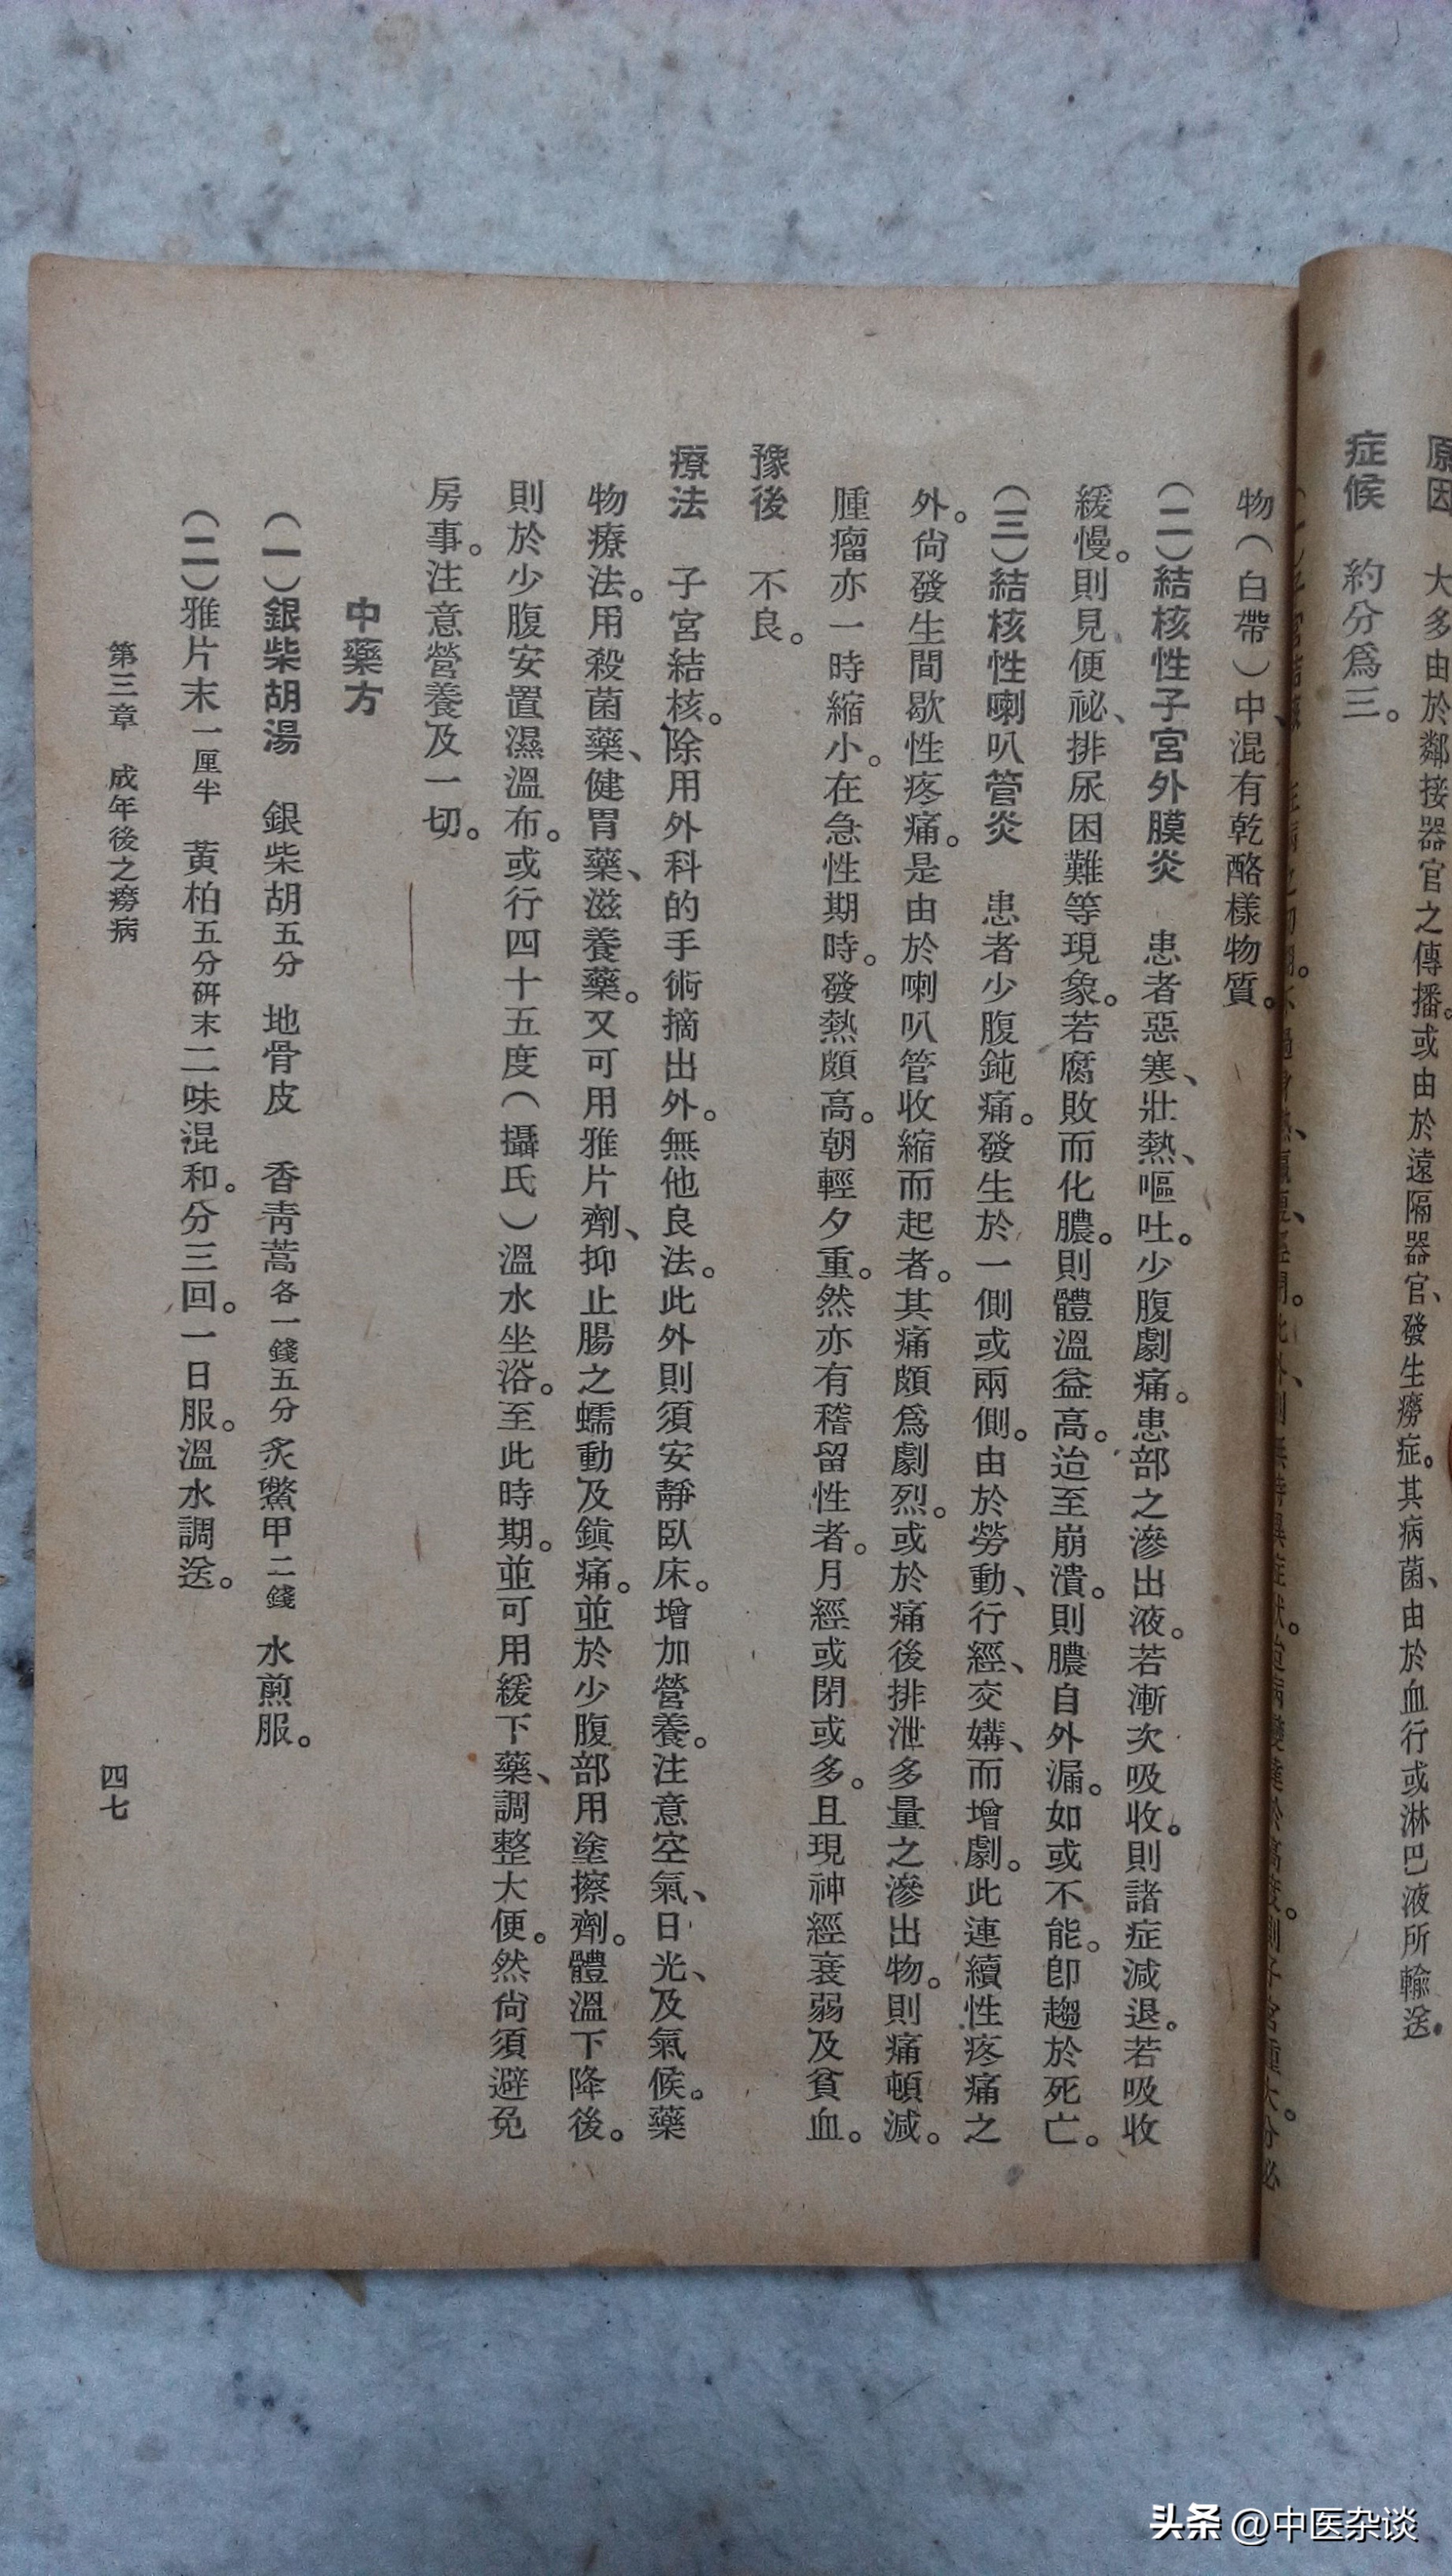 原因　大多由於鄰接器官之傳播。或由於遠隔器官、發生癆症。其病菌、由於血行或淋巴液所輸送。
症候　約分爲三。
物（白帶）中、混有乾酪樣物質。
（二）結核性子宮外膜炎　患者惡寒、壯熱、嘔吐。少腹劇痛。患部之滲出液。若漸次吸收。則諸症減退。若吸收
緩慢。則見便祕、排尿困難等現象。若腐敗而化膿。則體溫益高。迨至崩潰。則膿自外漏。如或不能。卽趨於死亡。
（三）結核性喇叭管炎　患者少腹鈍痛。發生於一側或兩側。由於勞動、行經、交媾、而增劇。此連續性疼痛之
外。尙發生間歇性疼痛。是由於喇叭管收縮而起者。其痛頗爲劇烈。或於痛後排泄多量之滲出物。則痛頓減。
腫瘤亦一時縮小。在急性期時。發熱頗高。朝輕夕重。然亦有稽留性者。月經或閉或多。且現神經衰弱及貧血。
豫後　不良。
療法　子宮結核。除用外科的手術摘出外。無他良法。此外則須安靜臥床。增加營養。注意空氣、日光、及氣候。藥
物療法。用殺菌藥、健胃藥、滋養藥。又可用雅片劑、抑止腸之蠕動及鎮痛。並於少腹部用塗擦劑。體溫下降後。
則於少腹安置濕溫布。或行四十五度（攝氏）溫水坐浴。至此時期。並可用緩下藥、調整大便。然尙須避免
房事。注意營養及一切。
中藥方
（一）銀柴胡湯　銀柴胡五分　地骨皮　香靑蒿各一錢五分　炙鱉甲二錢　水煎服。
（二）雅片末一厘半　黃柏五分研末二味混和。分三回。一日服。溫水調送。
第三章　成年後之癆病
四七
头条 @中医杂谈